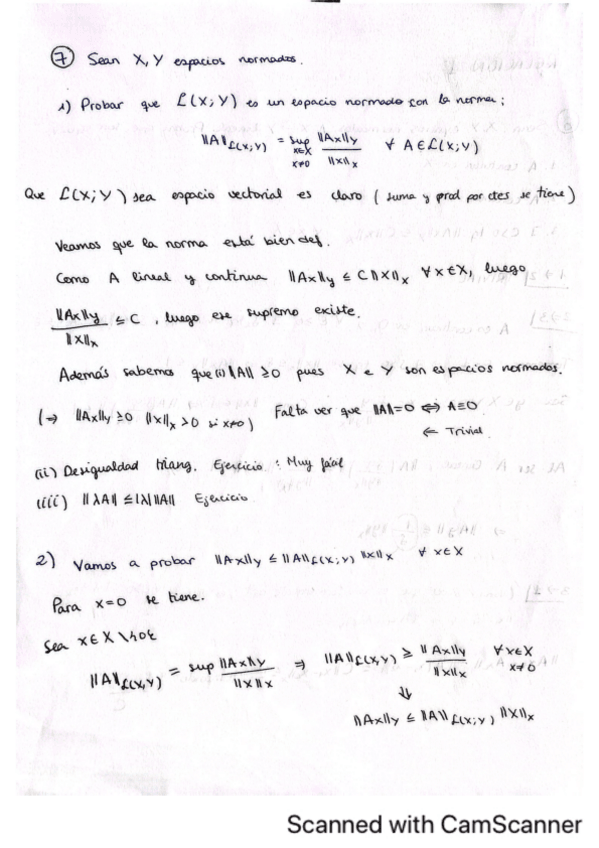 ⑦ Sean X, Y espacios normados.
1) Probar que L(X;Y) es un espacio normado con la norma:
||A||L(X;Y) = sup x∈X x≠0 ||Ax||Y / ||x||X ∀ A∈L(X;Y)
Que L(X;Y) sea espacio vectorial es claro (suma y prod por ctes se tiene)
Veamos que la norma está bien def.
Como A lineal y continua ||Ax||y ≤ C||x||x ∀x∈X, luego
||Ax||y / ||x||x ≤ C, luego ese supremo existe.
Además sabemos que (i) ||A|| ≥0 pues X e Y son espacios normados.
(→ ||Ax||y ≥0 ||x||x >0 si x≠0) Falta ver que ||A||=0 ⇔ A≡0
⇐ Trivial
(ii) Desigualdad triang. Ejercicio: Muy fácil
(iii) ||λA|| ≤ |λ| ||A|| Ejercicio
2) Vamos a probar ||Ax||y ≤ ||A||L(X;Y) ||x||x ∀ x∈X
Para x=0 se tiene.
Sea x∈X\{0}
||A||L(X,Y) = sup ||Ax||y / ||x||x ⇒ ||A||L(X,Y) ≥ ||Ax||y / ||x||x ∀x∈X x≠0
⇓
||Ax||y ≤ ||A||L(X;Y) ||x||x
Scanned with CamScanner